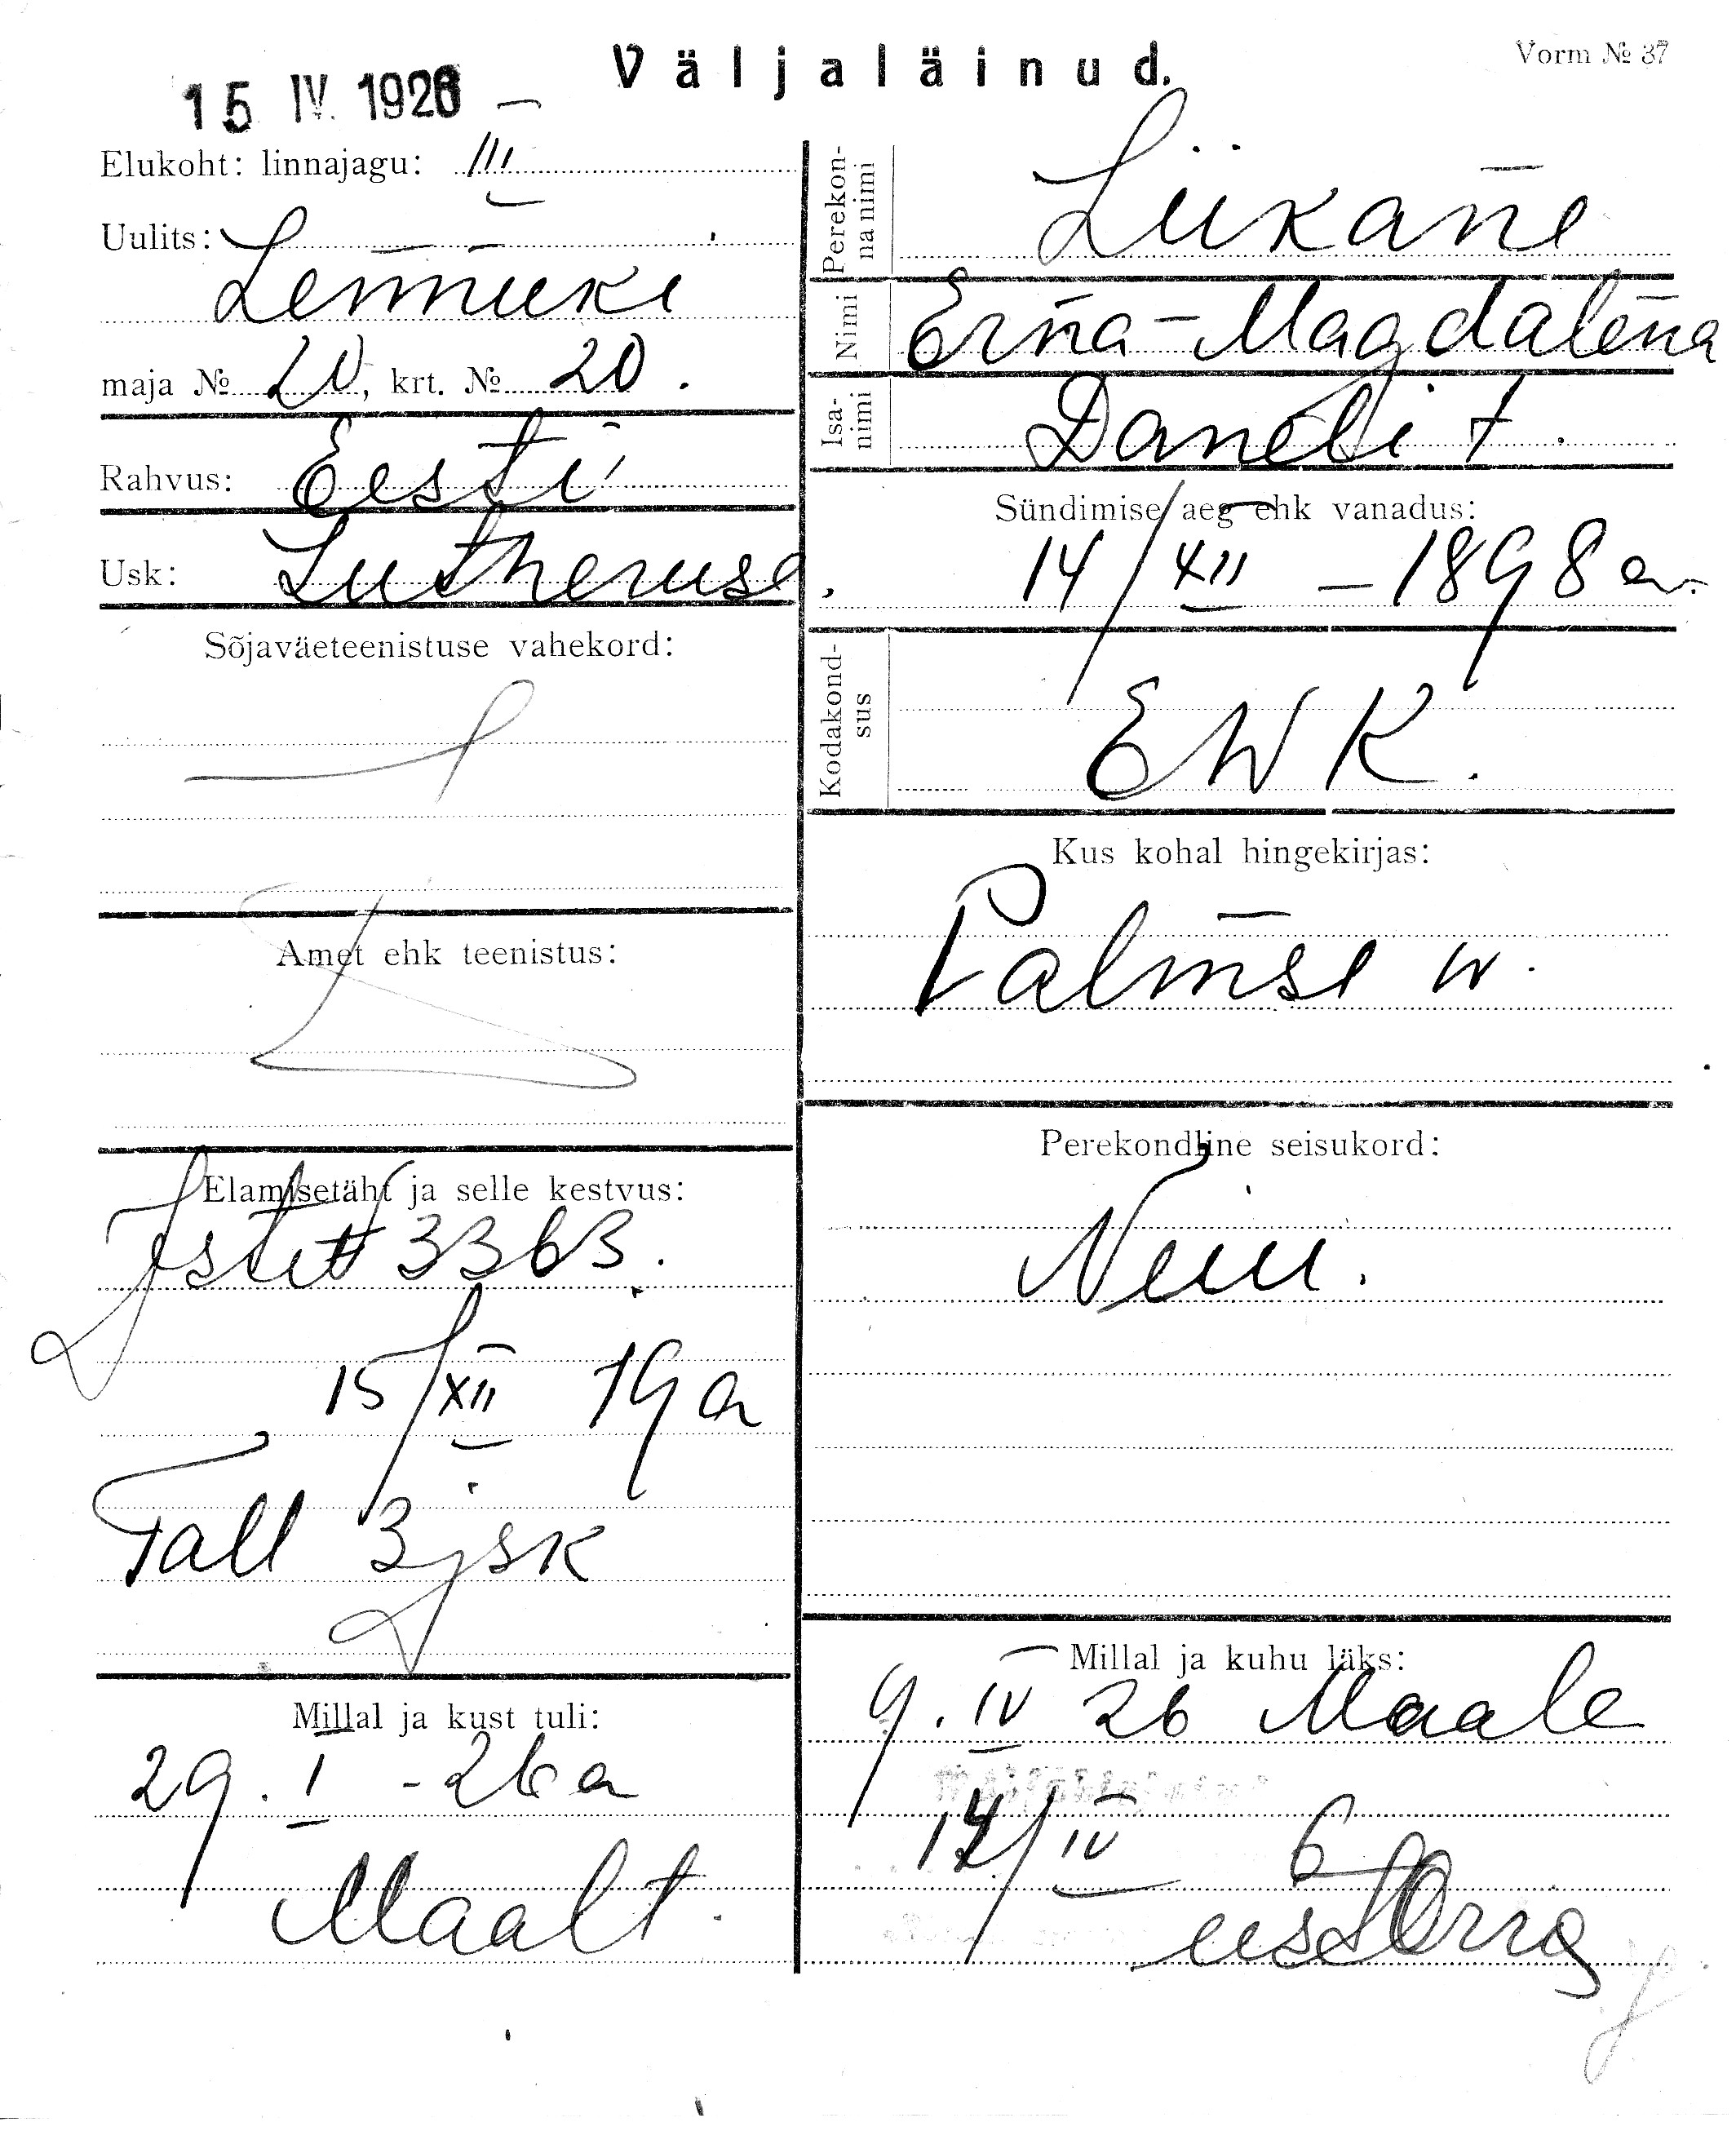 15 IV. 1926 —
Väljaläinud.
Vorm № 37
Elukoht: linnajagu: III
Uulits: Lennuki
maja № 20, krt. № 20.
Rahvus: Eesti
Usk: Lutheruse.
Sõjaväeteenistuse vahekord:
Amet ehk teenistus:
Elamisetäht ja selle kestvus:
3363.
15/XII 19 a
Tall 3 jsk
Millal ja kust tuli:
29. I - 26 a
Maalt.
Perekonnanimi Liikane
Nimi Erna-Magdalena
Isanimi Daneli t.
Sündimise aeg ehk vanadus:
14/XII — 1898 a.
Kodakondsus EWK.
Kus kohal hingekirjas:
Palmse w.
Perekondline seisukord:
Neiu.
Millal ja kuhu läks:
9. IV 26 Maale
IV 6